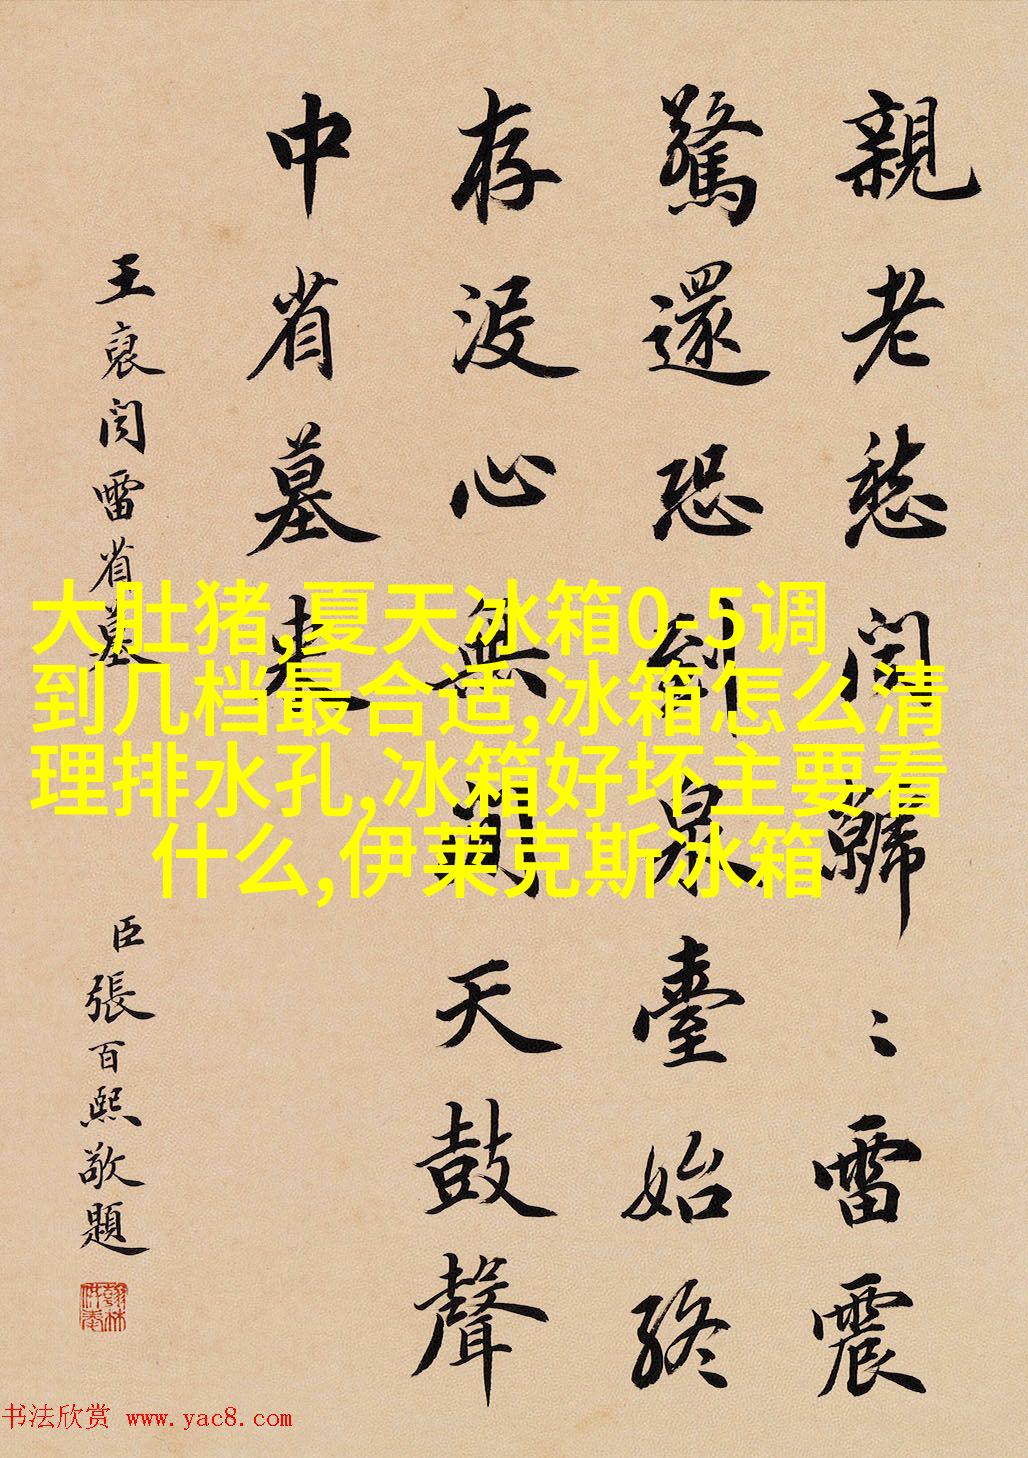 親老愁聞歸〻雷震
驚還恐到泉臺始終
存没心無間天鼓聲
中省墓来
王裒聞雷省墓
臣張百熙敬題
大肚猪,夏天冰箱0-5调
到几档最合适,冰箱怎么清
理排水孔,冰箱好坏主要看
什么,伊莱克斯冰箱
书法欣赏 www.yac8.com